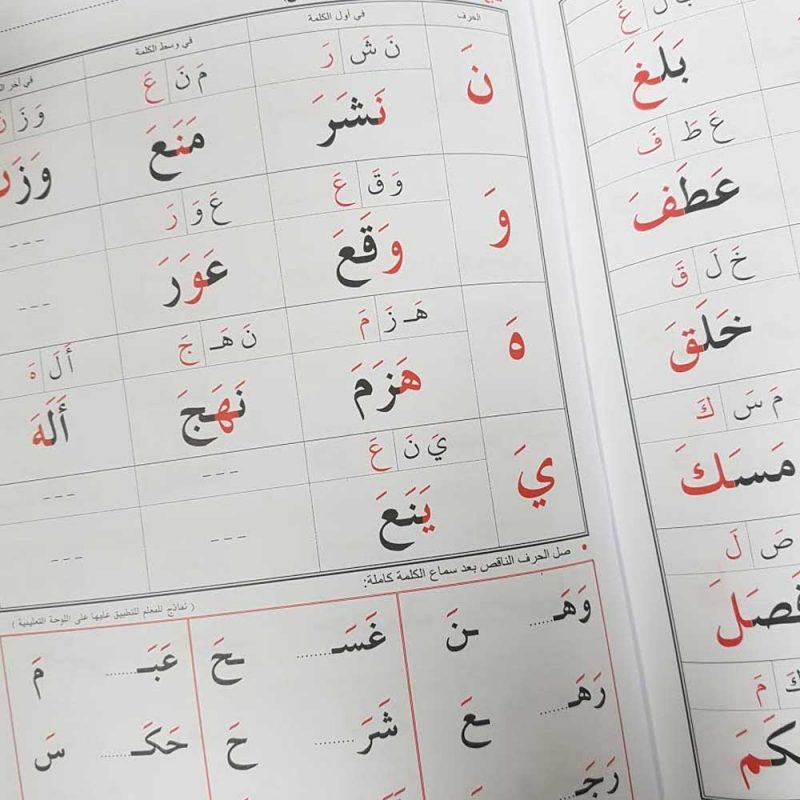 الحرف في أول الكلمة في وسط الكلمة في آخر
نَ نَ شَ رَ مَ نَ عَ وَ زَ نَ
نَشَرَ مَنَعَ وَزَنَ
وَ وَ قَ عَ عَ وَ رَ - - -
وَقَعَ عَوَرَ - - -
هَ هَـ زَ مَ نَ هَـ جَ أَ لَ هَ
هَزَمَ نَهَجَ أَلَهَ
يَ يَ نَ عَ - - - - - -
يَنَعَ - - - - - -
• صل الحرف الناقص بعد سماع الكلمة كاملة:
( نماذج للمعلم للتطبيق عليها على اللوحة التعليمية )
وَهَـ..... ـنَ غَسَـ........ ـحَ عَبَـ........ مَ
رَهَـ..... ـعَ شَرَ......... حَ حَكَـ..... سَ
رَجَـ
غَ
بَلَغَ
عَ طَ فَ
عَطَفَ
خَ لَ قَ
خَلَقَ
مَ سَ كَ
مَسَكَ
صَ لَ
فَصَلَ
كَ مَ
كَمَ